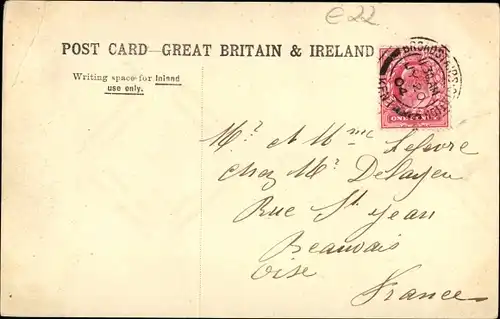 e22
POST CARD—GREAT BRITAIN & IRELAND
Writing space for Inland
use only.
ONE PENNY
Mr & Mme Lefevre
chez Mr Delayen
Rue St Jean
Beauvais
Oise
France